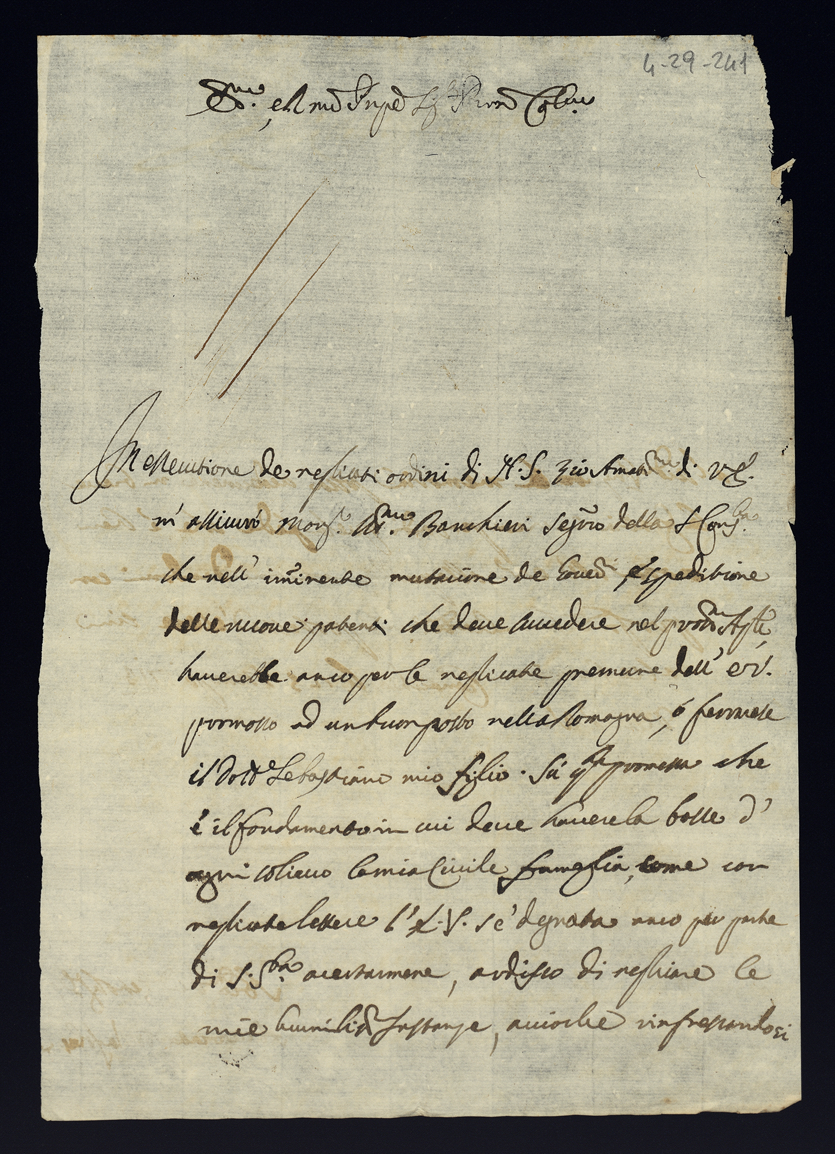 4-29-241
Em.mo, e R.mo Prnpe Sig.r P.ron Col.mo
In essecutione de replicati ordini di N. S. zio Amat.mo di V. E.
m' assicurò Mons.r Ill.mo Banchieri Segr.rio della S. Cong.ne
che nell' im̃inente mutatione de Gover.ri e speditione
delle nuove patenti che deve succedere nel pross.mo Aple
haverebbe anco per le replicate premure dell' E. V.
promosso ad un buon posto nella Romagna, ò fermese
il Dott.e Sebastiano mio figlio. Sù q.sta promessa che
è il fondamento in cui deve havere la base d'
ogni solievo la mia Civile famiglia, come con
replicate lettere l' E. V. s'è degnata anco per parte
di S. S.tà acertarmene, ardisco di replicare le
mie humiliss.e Instanze, acciochè rinfrescandosi